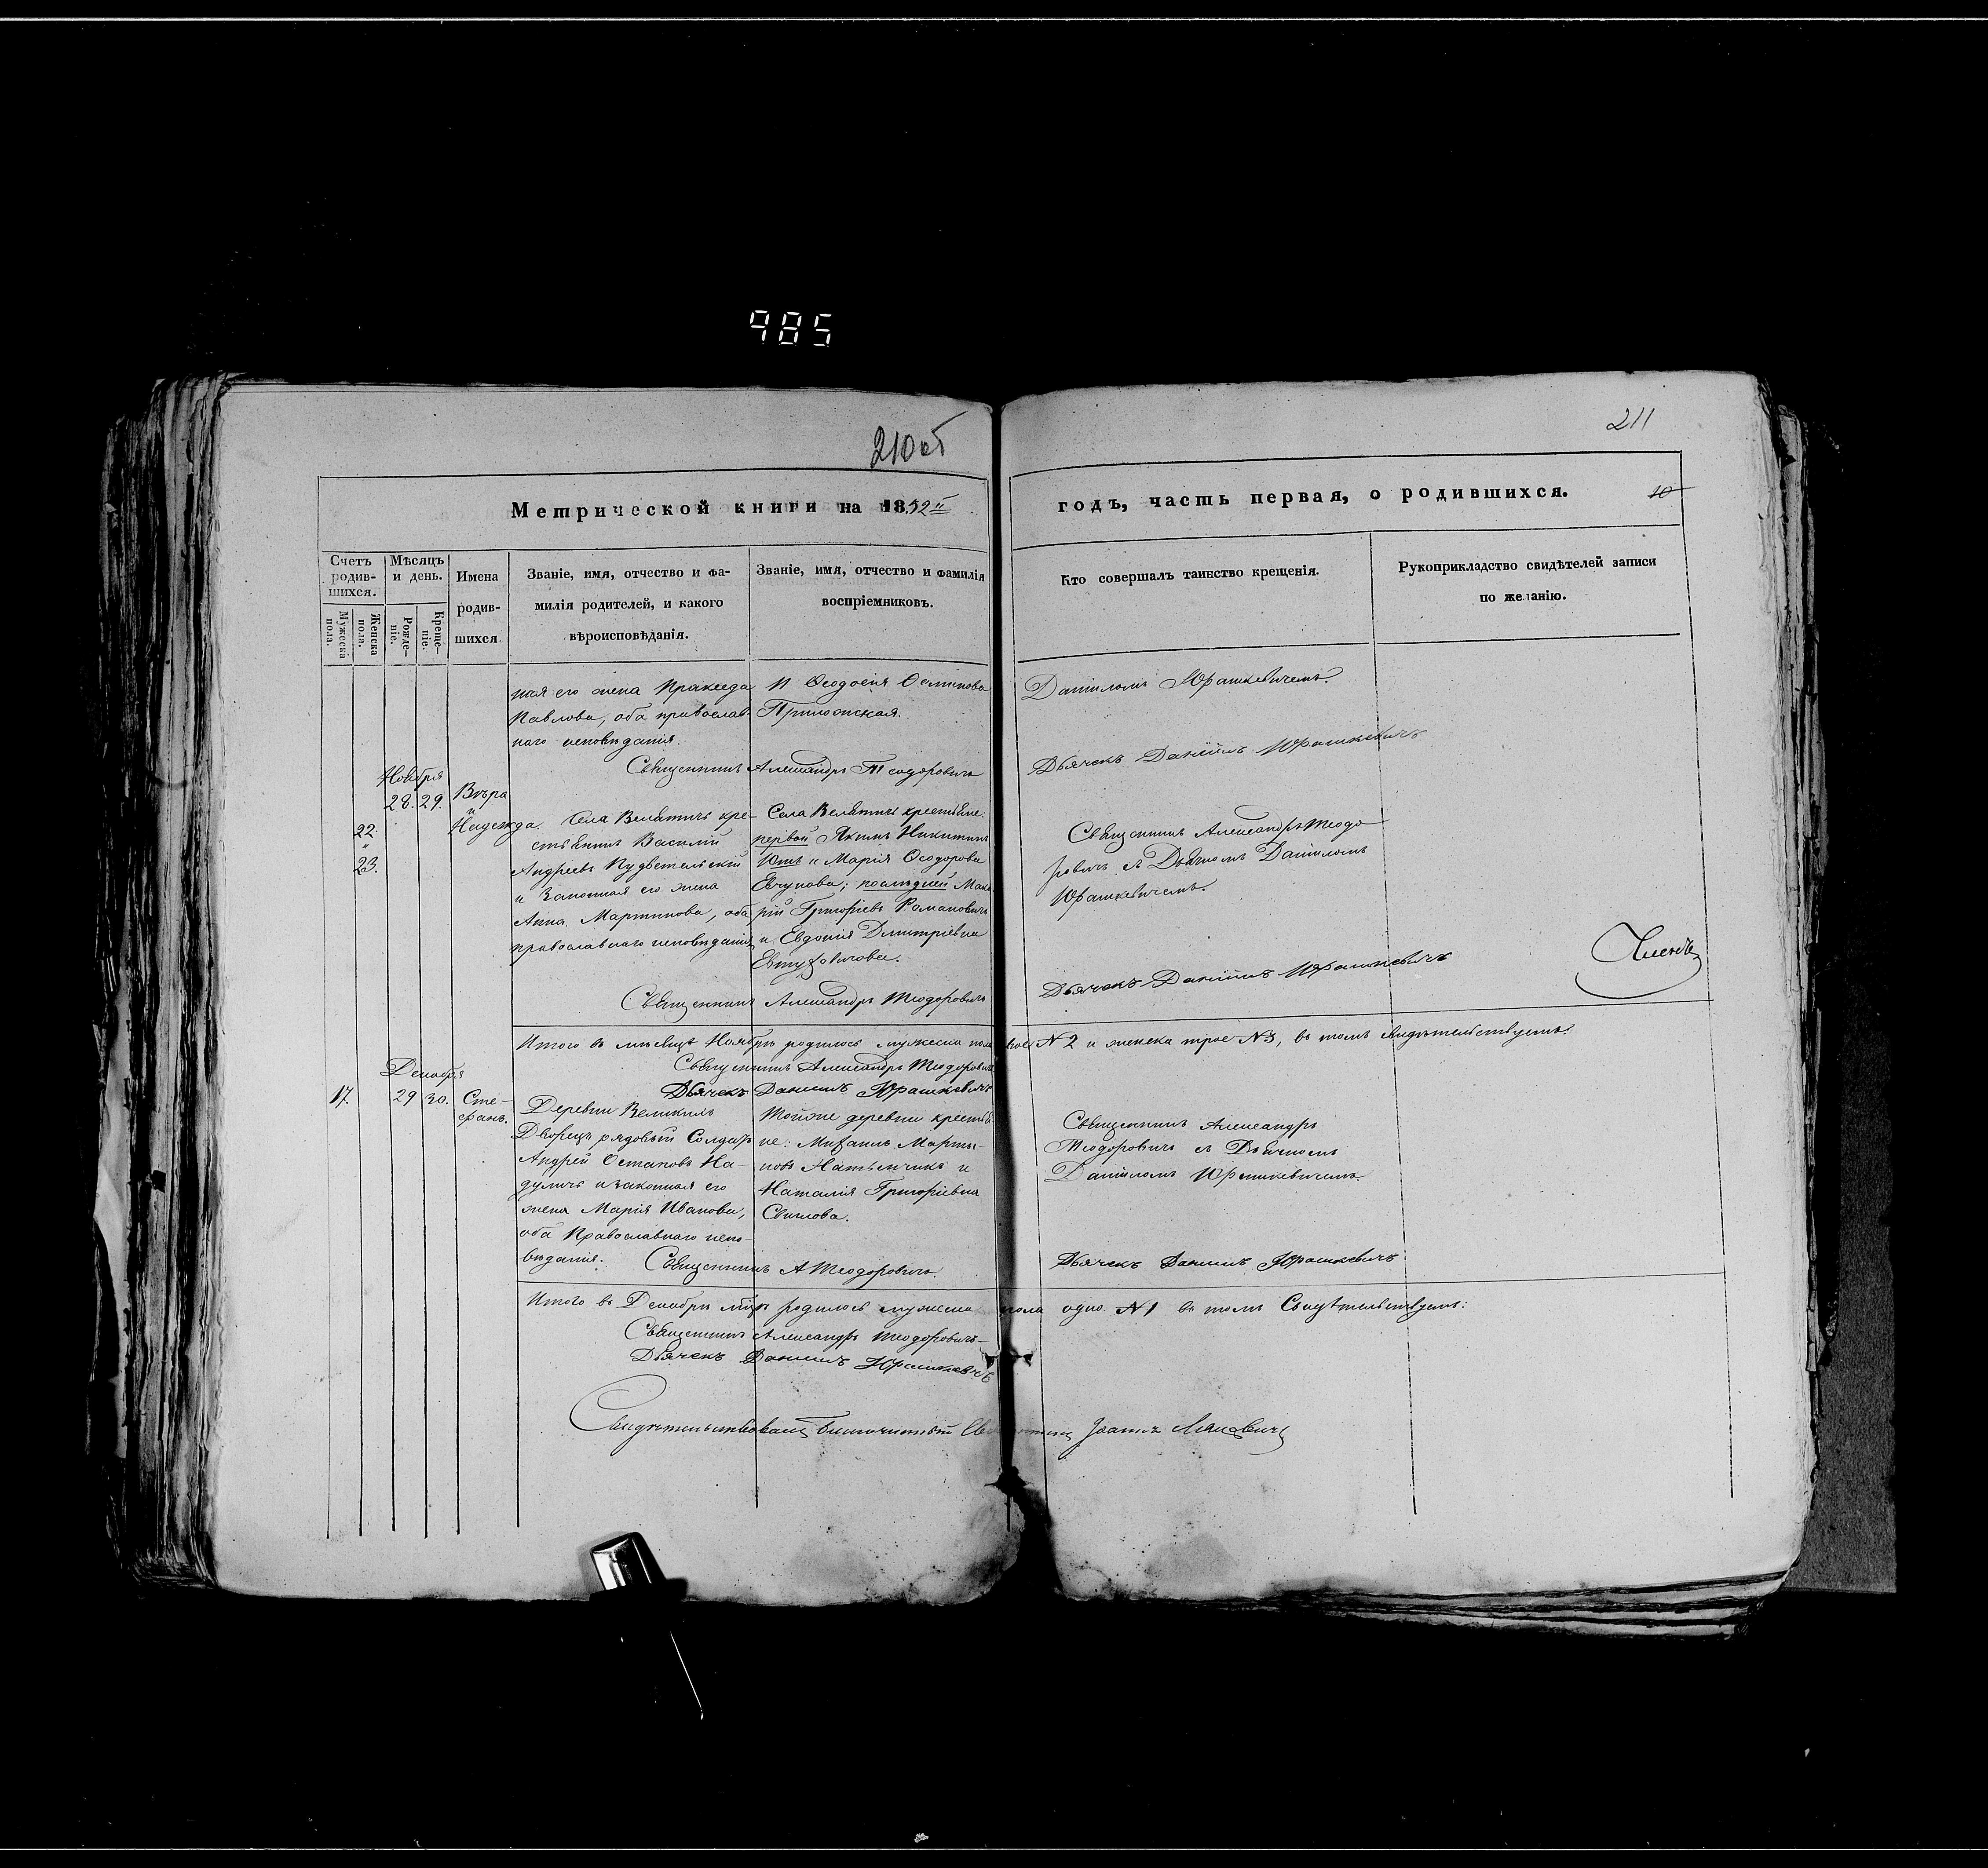 985
210 об
211
Метрической книги на 1852й
годъ, часть первая, о родившихся.
10
Счетъ родив-шихся.
Мужеска пола.
Женска пола.
Мѣсяцъ и день.
Рожде-ніе.
Креще-ніе.
Имена
родив-
шихся
Званіе, имя, отчество и фа-
милія родителей, и какого
вѣроисповѣданія.
Званіе, имя, отчество и фамилія
воспріемниковъ.
Кто совершалъ таинство крещенія.
Рукоприкладство свидѣтелей записи
по желанію.
ная его жена Пракседа
Павлова, оба православ-
наго исповѣданія.
И Ѳеодосія Осипова
Даніиломъ Юрашкевичемъ.
Священникъ Александръ Теодоровичъ
Дьячекъ Даніилъ Юрашкевичъ
22.
"
23.
Ноября
28. 29.
Вѣра
и
Надежда.
Села Велятичъ кре-
стьянинъ Василій
Андреевъ
и законная его жена
Анна Мартинова, оба
православнаго исповѣданія
Села Велятичъ крестьяне:
первой Якимъ Никитинъ
и Марія Ѳеодорова
послѣдней Мака-
рій Григоріевъ Романовичъ
и Евдокія Димитріевна
Священникъ Александръ Теодо-
ровичъ съ Дьячкомъ Даніиломъ
Юрашкевичемъ.
Священникъ Александръ Теодоровичъ
Дьячекъ Даніилъ Юрашкевичъ
Итого въ мѣсяцѣ Ноябрѣ родилось мужеска пола двое N 2 и женска трое N 3, въ томъ свидѣтельствуемъ:
Священникъ Александръ Теодоровичъ
Дьячекъ Даніилъ Юрашкевичъ
17.
Декабря
29 30.
Сте-
фанъ.
Деревни Великихъ
Дворецъ рядовый Солдатъ
Андрей Остаповъ На-
дуличъ и законная его
жена Марія Иванова,
оба Православнаго испо-
вѣданія.
Тойже деревни крестья
не: Михаилъ Марти-
новъ и
Наталія Григоріевна
Священникъ Александръ
Теодоровичъ съ Дьячкомъ
Даніиломъ Юрашкевичемъ
Священникъ А Теодоровичъ.
Дьячекъ Даніилъ Юрашкевичъ
Итого въ Декабрѣ мцѣ родилось мужеска пола одно N 1 въ томъ Свидѣтельствуемъ:
Священникъ Александръ Теодоровичъ
Дьячекъ Даніилъ Юрашкевичъ
Свидѣтельствовалъ Благочинный Священникъ Іоаннъ